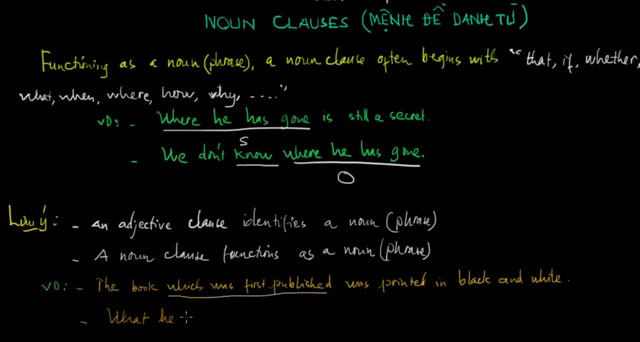 NOUN CLAUSES (MỆNH ĐỀ DANH TỪ)
Functioning as a noun (phrase), a noun clause often begins with "that, if, whether,
what, when, where, how, why, ....."
VD: - Where he has gone is still a secret.
S
- We don't know where he has gone.
O
Lưu ý: - An adjective clause identifies a noun (phrase)
- A noun clause functions as a noun (phrase)
VD: - The book which was first published was printed in black and white.
- What he